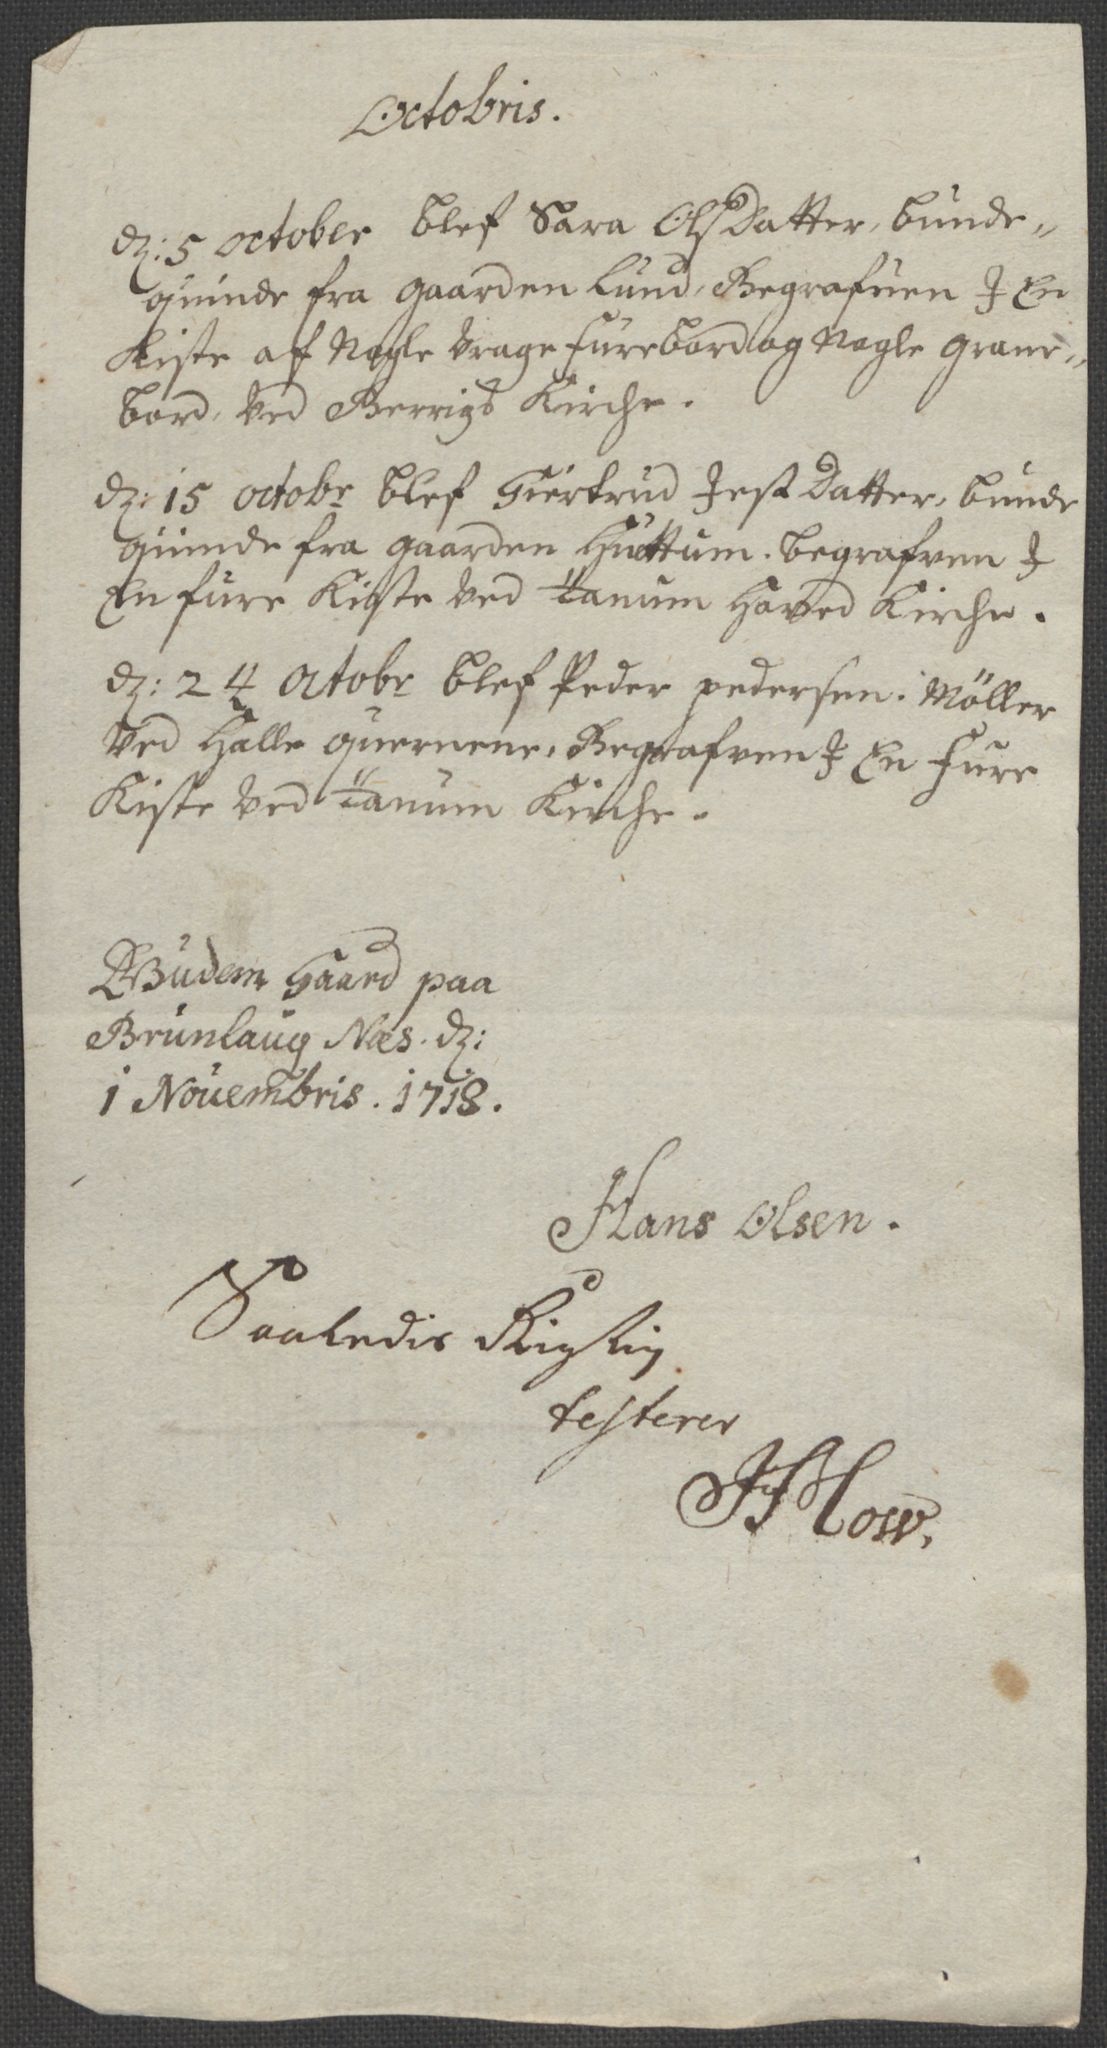 Octobris.
dz: 5 october blef Sara OlsDatter, bunde„
quinde fra gaarden Lund, Begrafuen J En
Kiste af Nogle Vrage furebord og Nogle grane„
bord, Ved Berrigs Kirche.
dz: 15 octobr blef Giertrud Jens Datter, bunde
quinde fra gaarden Huttum. begrafven J
En fure Kiste Ved Tanum Hoved Kirche.
dz: 24 octobr blef Peder pedersen. Möller
Ved Halle quernene, Begrafven J En fure
Kiste Ved Tanum Kirche.
Gaard paa
Brunlaug Næs. dz:
1 Nouembris. 1718.
Hans Olsen.
Saaledis Rigtig
testerer